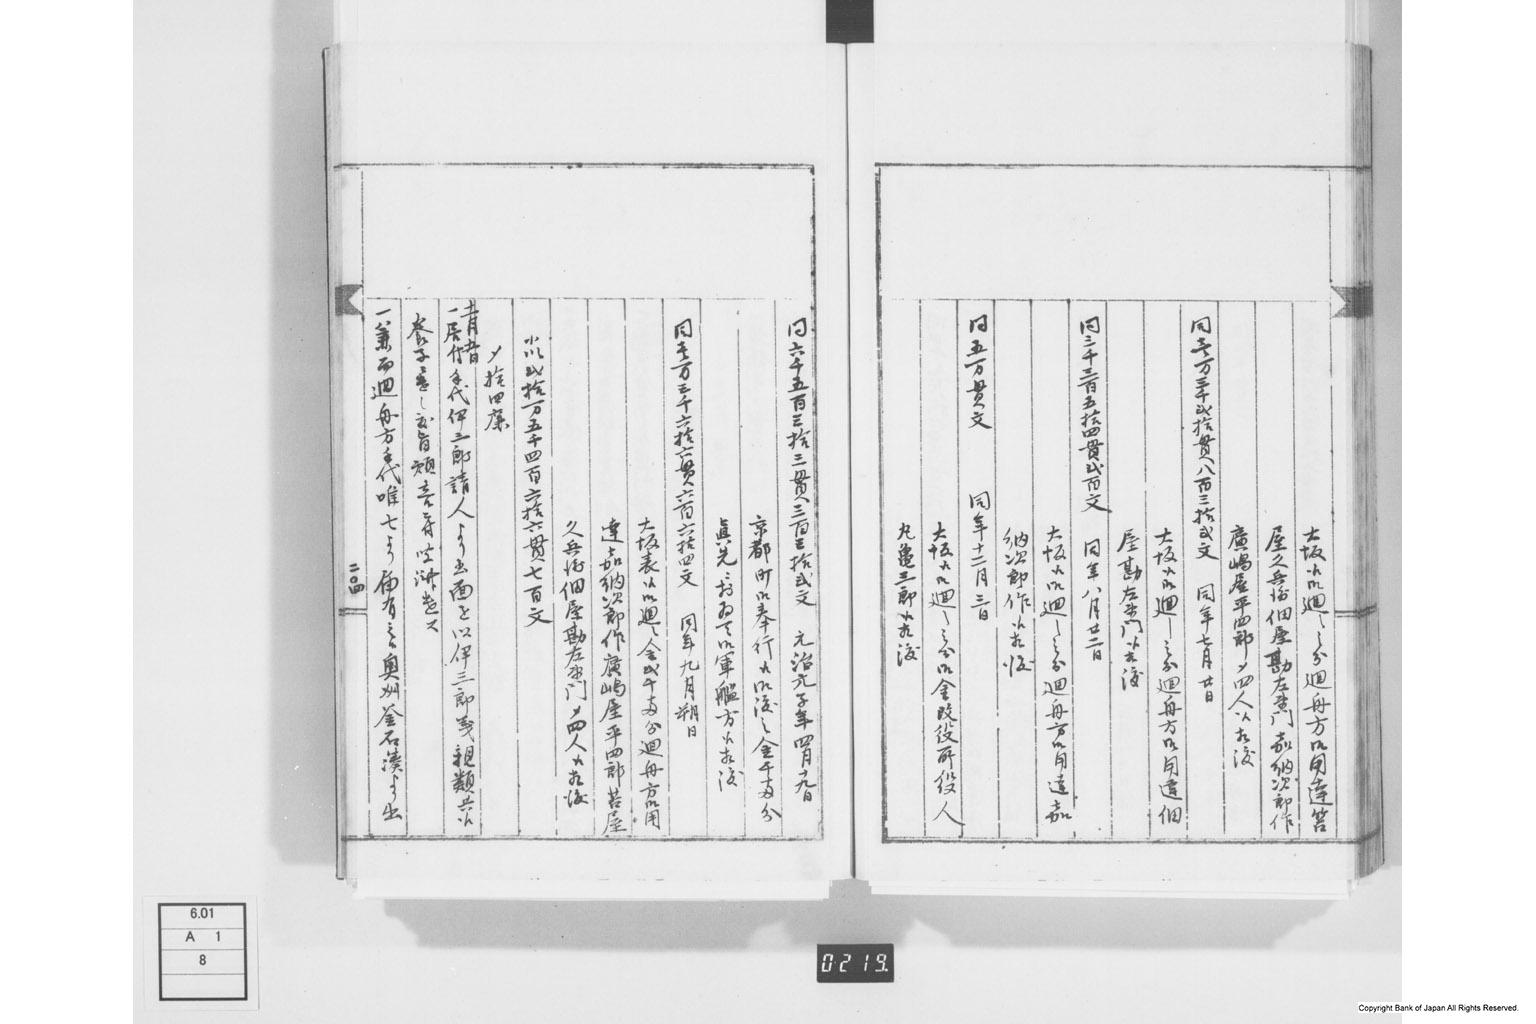 大坂御廻し之分廻舟方御用達苫
屋久兵衛佃屋勘左衛門嘉納次郎作
廣嶋屋平四郎〆四人江相渡
同壱万三千弐拾貫八百三拾弐文 同年七月廿日
大坂江御廻し之分廻舟方御用達佃
屋勘左衛門江相渡
同三千三百五拾四貫弐百文 同年八月廿二日
大坂江御廻し之分廻舟方御用達嘉
納次郎作江相渡
同五万貫文 同年十二月三日
大坂江御廻し之分御金改役所役人
丸亀三郎江相渡
同六千五百三拾三貫三百三拾弐文 元治元子年四月十九日
京都町御奉行江御渡之金千両分
眞先
御軍艦方江相渡
同壱万三千六拾六貫六百六拾四文 同年九月朔日
大坂表江御廻し金弐千両分廻舟方御用
達嘉納次郎作廣嶋屋平四郎苫屋
久兵衛佃屋勘左衛門〆四人江相渡
小以弐拾万五千四百六拾六貫七百文
〆拾四廉
一居付手代伊三郎請人より書面を以伊三郎義親類共江
養子
一兼而廻舟方手代唯七より
奥州釜石湊より出
二〇四
6.01
A 1
8
0219.
Copyright Bank of Japan All Rights Reserved.